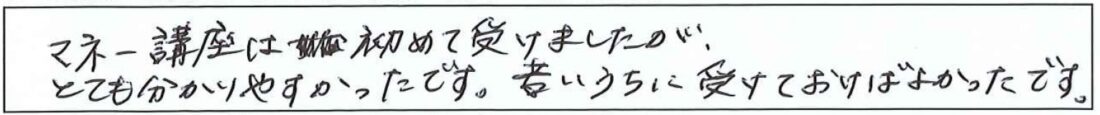 マネー講座は初めて受けましたが、
とても分かりやすかったです。若いうちに受けておけばよかったです。